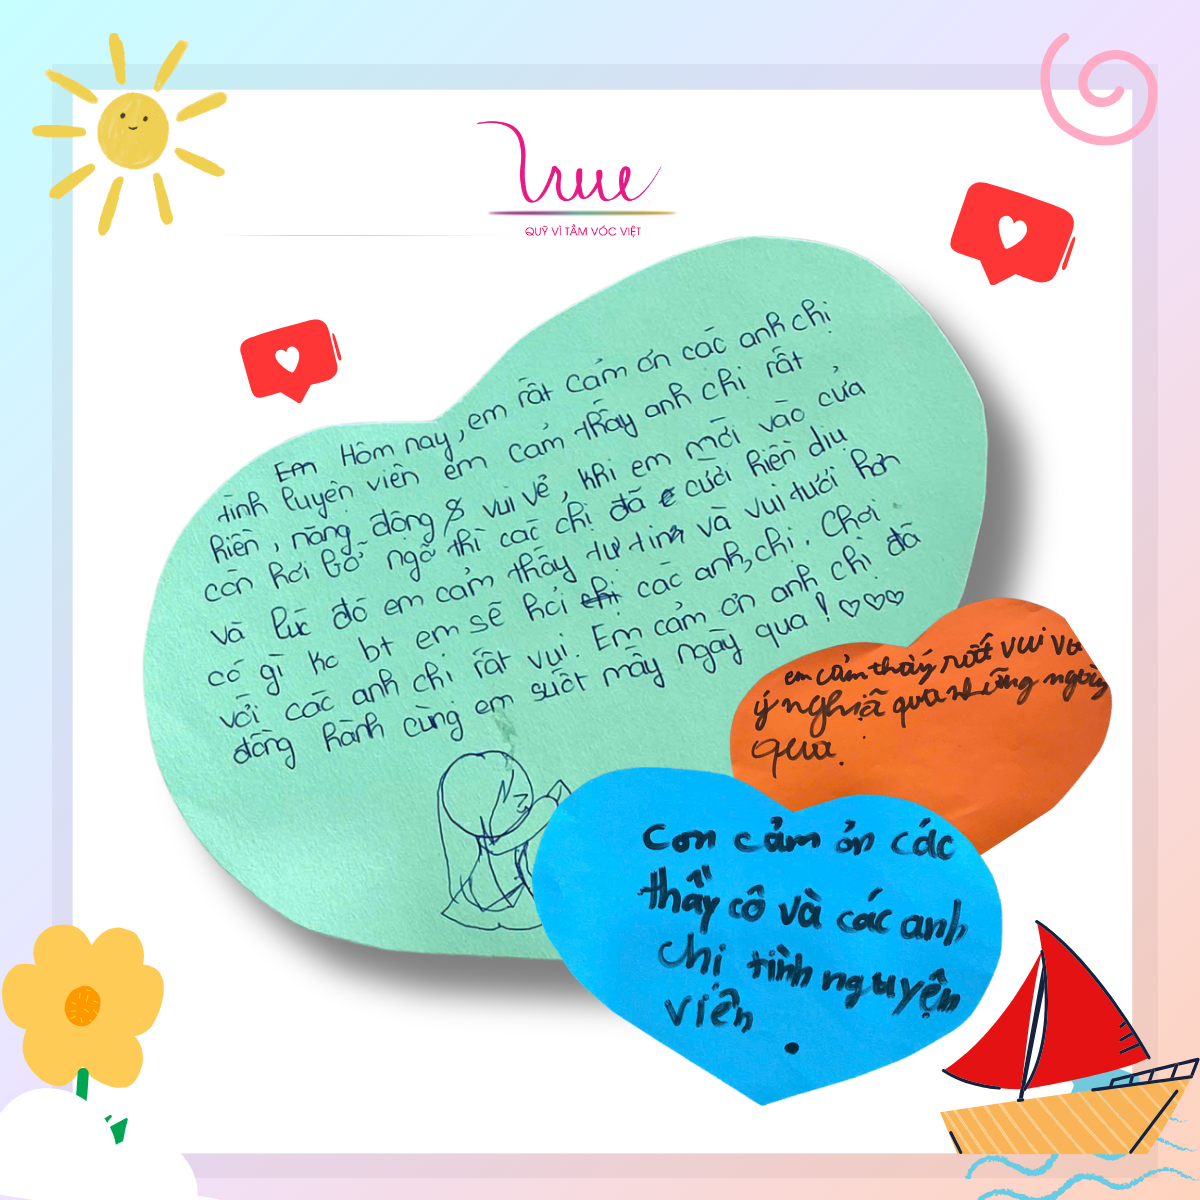 True
QUỸ VÌ TẦM VÓC VIỆT
Em Hôm nay, em rất cảm ơn các anh chị
tình luyện viên em cảm thấy anh chi rất
hiền, năng động & vui vẻ, khi em mới vào cửa
còn hơi bỡ ngỡ thì các chị đã cười hiền dịu
và lúc đó em cảm thấy tự tin và vui tươi hơn
có gì kc bt em sẽ hỏi chị các anh, chị. Chơi
với các anh chị rất vui. Em cảm ơn anh chị đã
đồng hành cùng em suốt mấy ngày qua! ♡♡♡
em cảm thấy rất vui và
ý nghĩa qua những ngày
qua.
con cảm ơn các
thầy cô và các anh
chi tình nguyện
viên
.